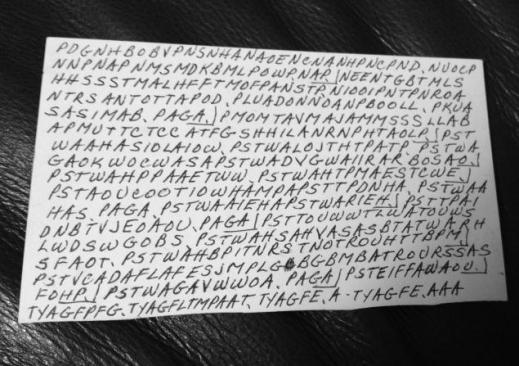 PDGNHBOBVPNSNHANAOENCNANHPNCPND. NUOCP
NNPNAPNMSMDKBMLPOWPNAP.) NEENTGBTMLS
HHSSSTMALHFFTMOFPANSTP. NIOOIPNTPNROA
NTRSANTOTTAPOD. PLUADONNOANPBOOLL. PKUA
SASIMAB. PAGA.) PMOMTAVMAJAMMSSSLLAB
APMUTTCTCCATFGSHHILANRNPHTAOLP.) PST
WAAHASIDLAIOW. PSTWALOJTHTPATP. PSTWA
GAOKWOCWASAPSTWADVGWAIIRARBOSAO.)
PSTWAHPPAAETWW. PSTWAHTPMAESTCWE.)
PSTAOUCOOTIOWHAMPAPSTTPDNHA. PSTWAA
HAS. PAGA. PSTWAAIEHAPSTWARIEH.) PSTTPAI
DNBTVJEOAOU. PAGA) PSTTOUWWTLWATOUWS
LWDSWGOBS. PSTWAHSAHVASASBTATWARH
SFAOT. PSTWAHBPITNRSTNOTROUHTTBPM)
PSTVCADAFLAFESJMPLG BGBMBATROURSSAS
FOHP.) PSTWAGAVWWOA. PAGA) PSTEIFFAWAOU.)
TYAGFPFG. TYAGFLTMPAAT. TYAGFE. A-TYAGFE. AAA